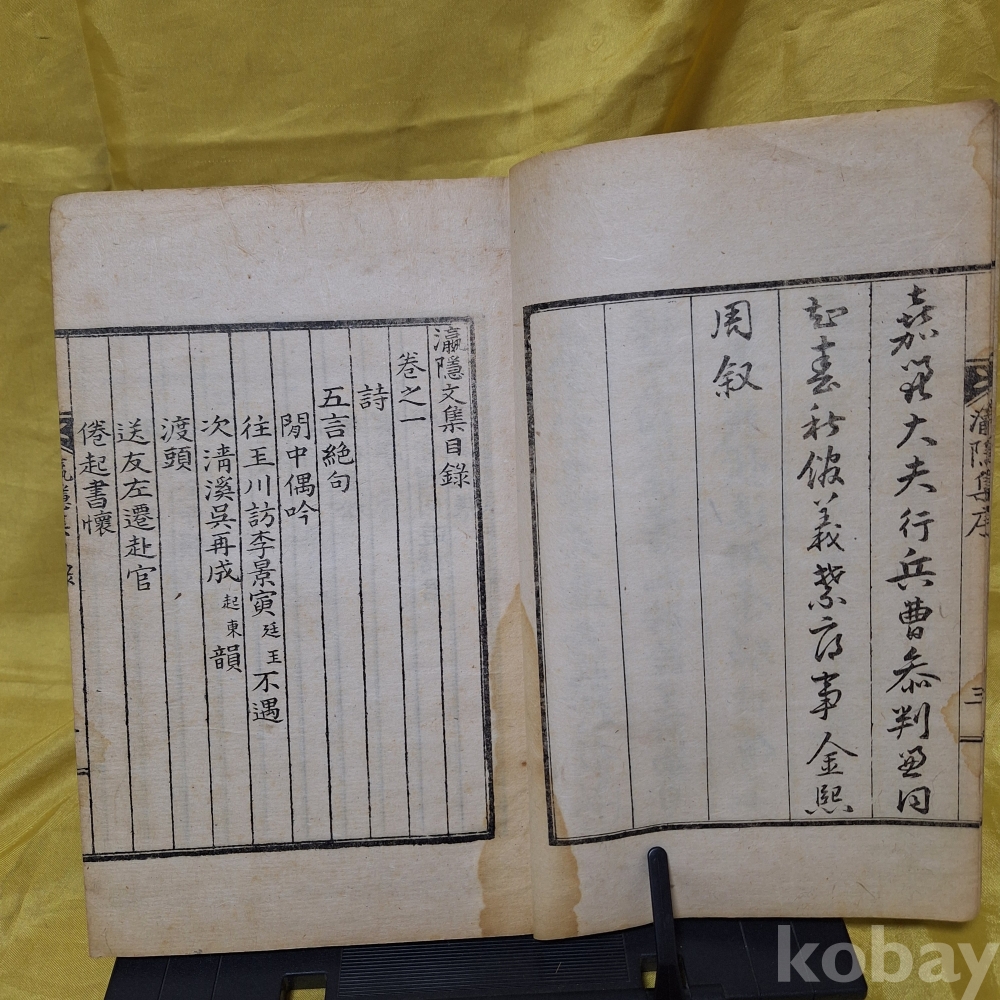 嘉善大夫行兵曹參判兼同
知春秋館義禁府事金熙
周叙
瀛隱集序
三
瀛隱文集目錄
卷之一
詩
五言絕句
閒中偶吟
往玉川訪李景寅廷玉不遇
次淸溪吳再成起東韻
渡頭
送友左遷赴官
倦起書懷
kobay